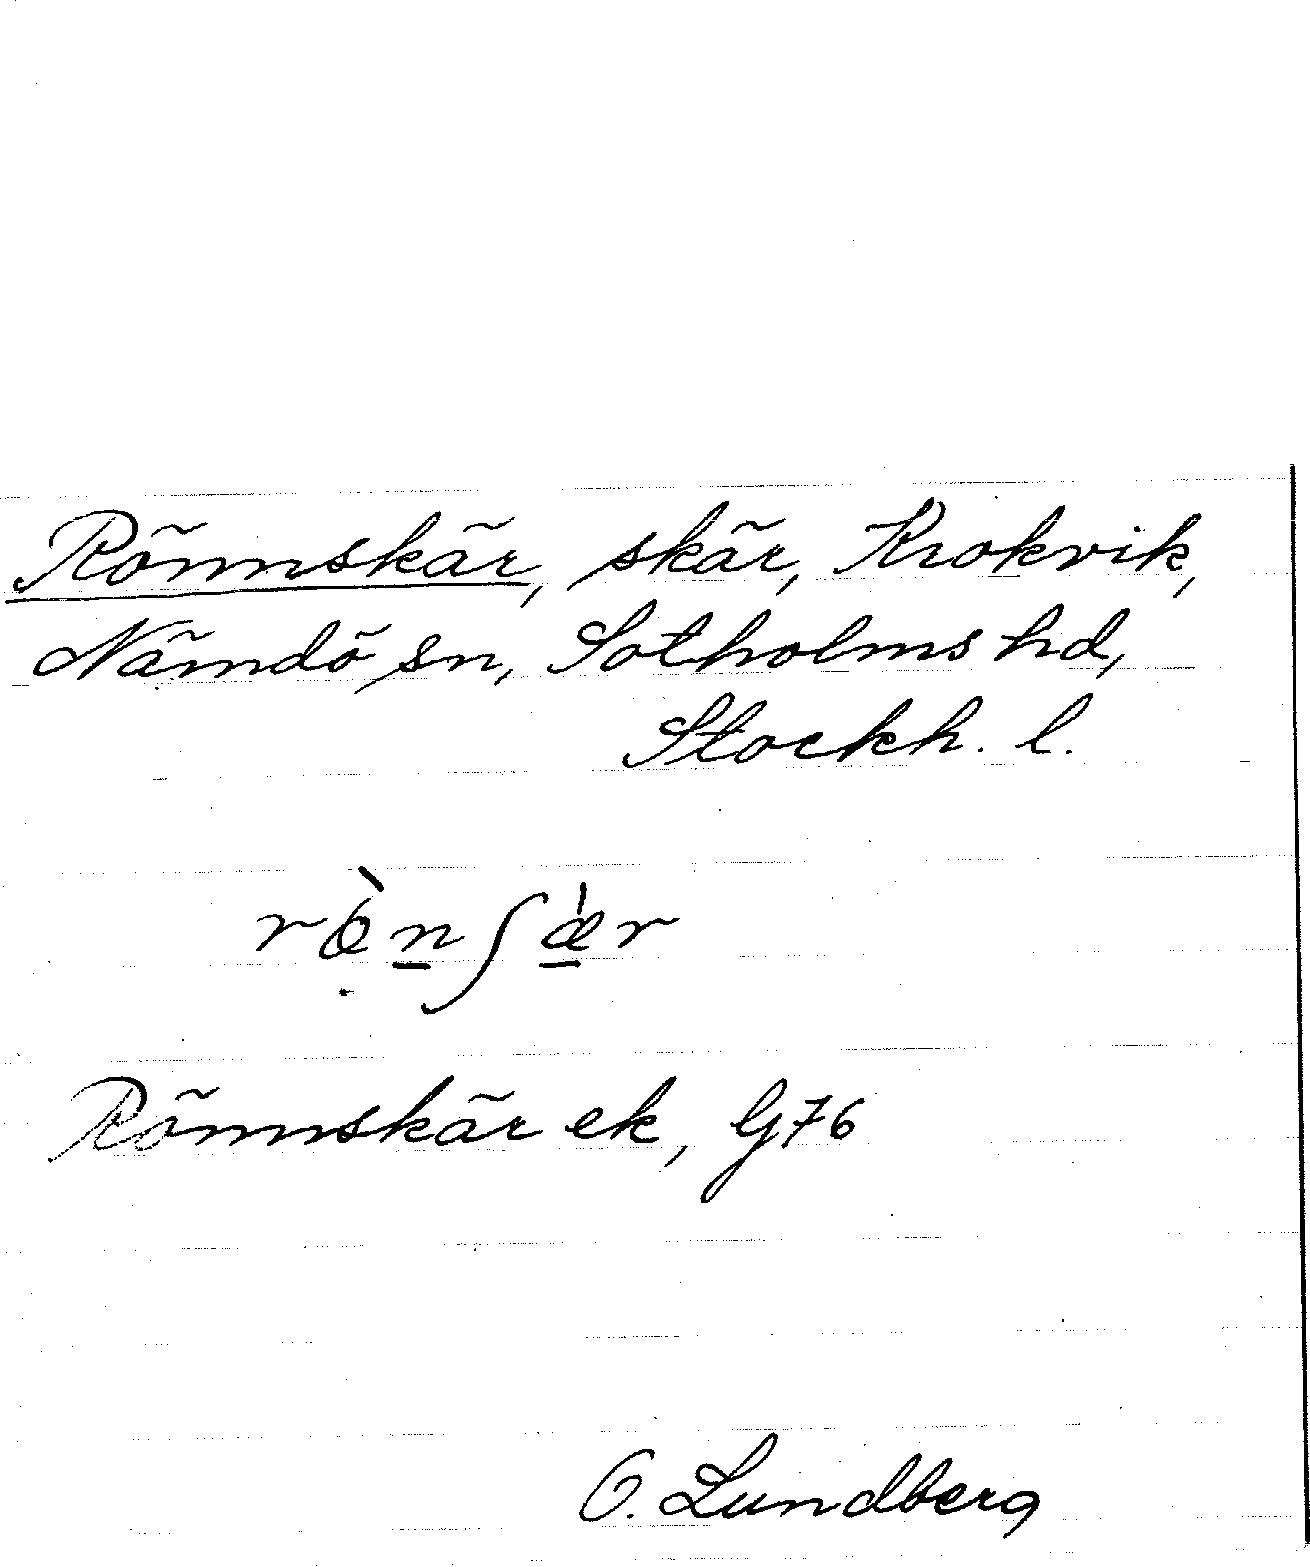 Rönnskär, skär, Krokvik,
Nämdö sn, Sotholms hd,
Stockh. l.
rö̀nʃæ̍r
Rönnskär ek, G76
O. Lundberg